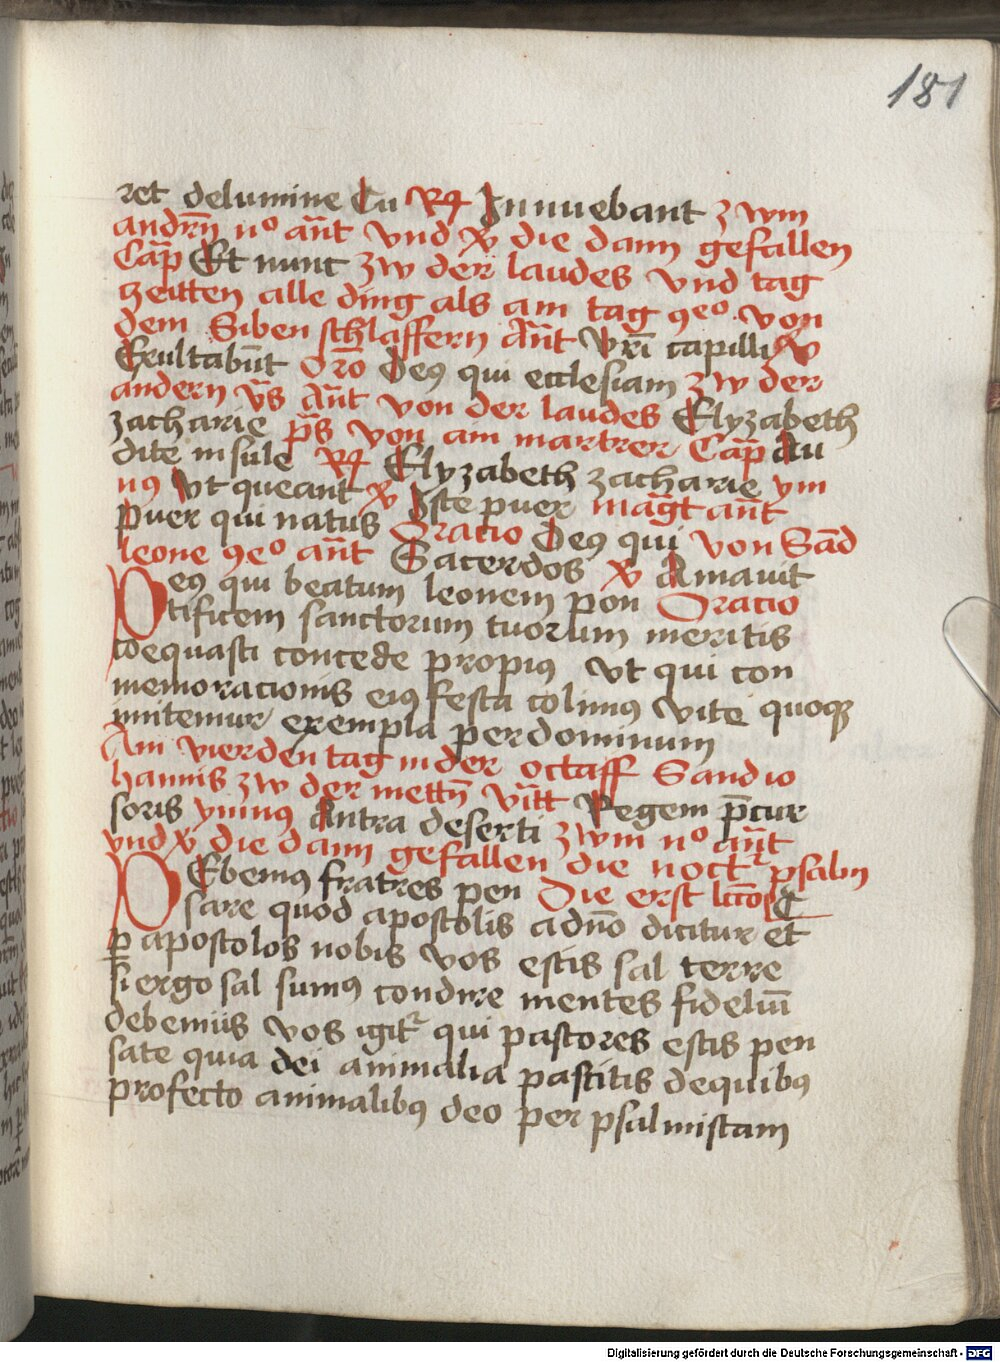 181
ret de lumine Cu R Innuebant zwm
andrn no ant vnd v die dann gefallen
Cap Et nunc zw der laudes vnd tag
zeitten alle ding als am tag 9eo von
dem Siben schlaffern Ant Vri capilli v
Exultabunt Oro Deq qui ecclesiam zw der
andern vs Ant von der laudes Elyzabeth
zacharie ps von aim martrer Cap Au
dite insule R Elyzabeth zacharie ym
nq Vt queant v Iste puer magt ant
Puer qui natus Oratio Deq qui von Sand
leone 9eo ant Sacerdos v Amauit
Deq qui beatum leonem pon Oracio
tificem sanctorum tuorum meritis
coequasti concede propiq vt qui con
memoracionis eiq festa colimq vite quoq
imitemur exempla per dominum
Am vierden tag in der octaff Sand io
hannis zw der mettn vitt Regem pcur
soris ymnq Antra deserti zwm no ant
vnd v die dann gefallen die noctr psalm
DEbemq fratres pen Die erst lcco
sare quod apostolis a dno dicitur et
p apostolos nobis vos estis sal terre
si ergo sal sumq condire mentes fideliu
debemus vos igitr qui pastores estis pen
sate quia dei animalia pascitis de quibq
profecto animalibq deo per psalmistam
Digitalisierung gefördert durch die Deutsche Forschungsgemeinschaft - DFG